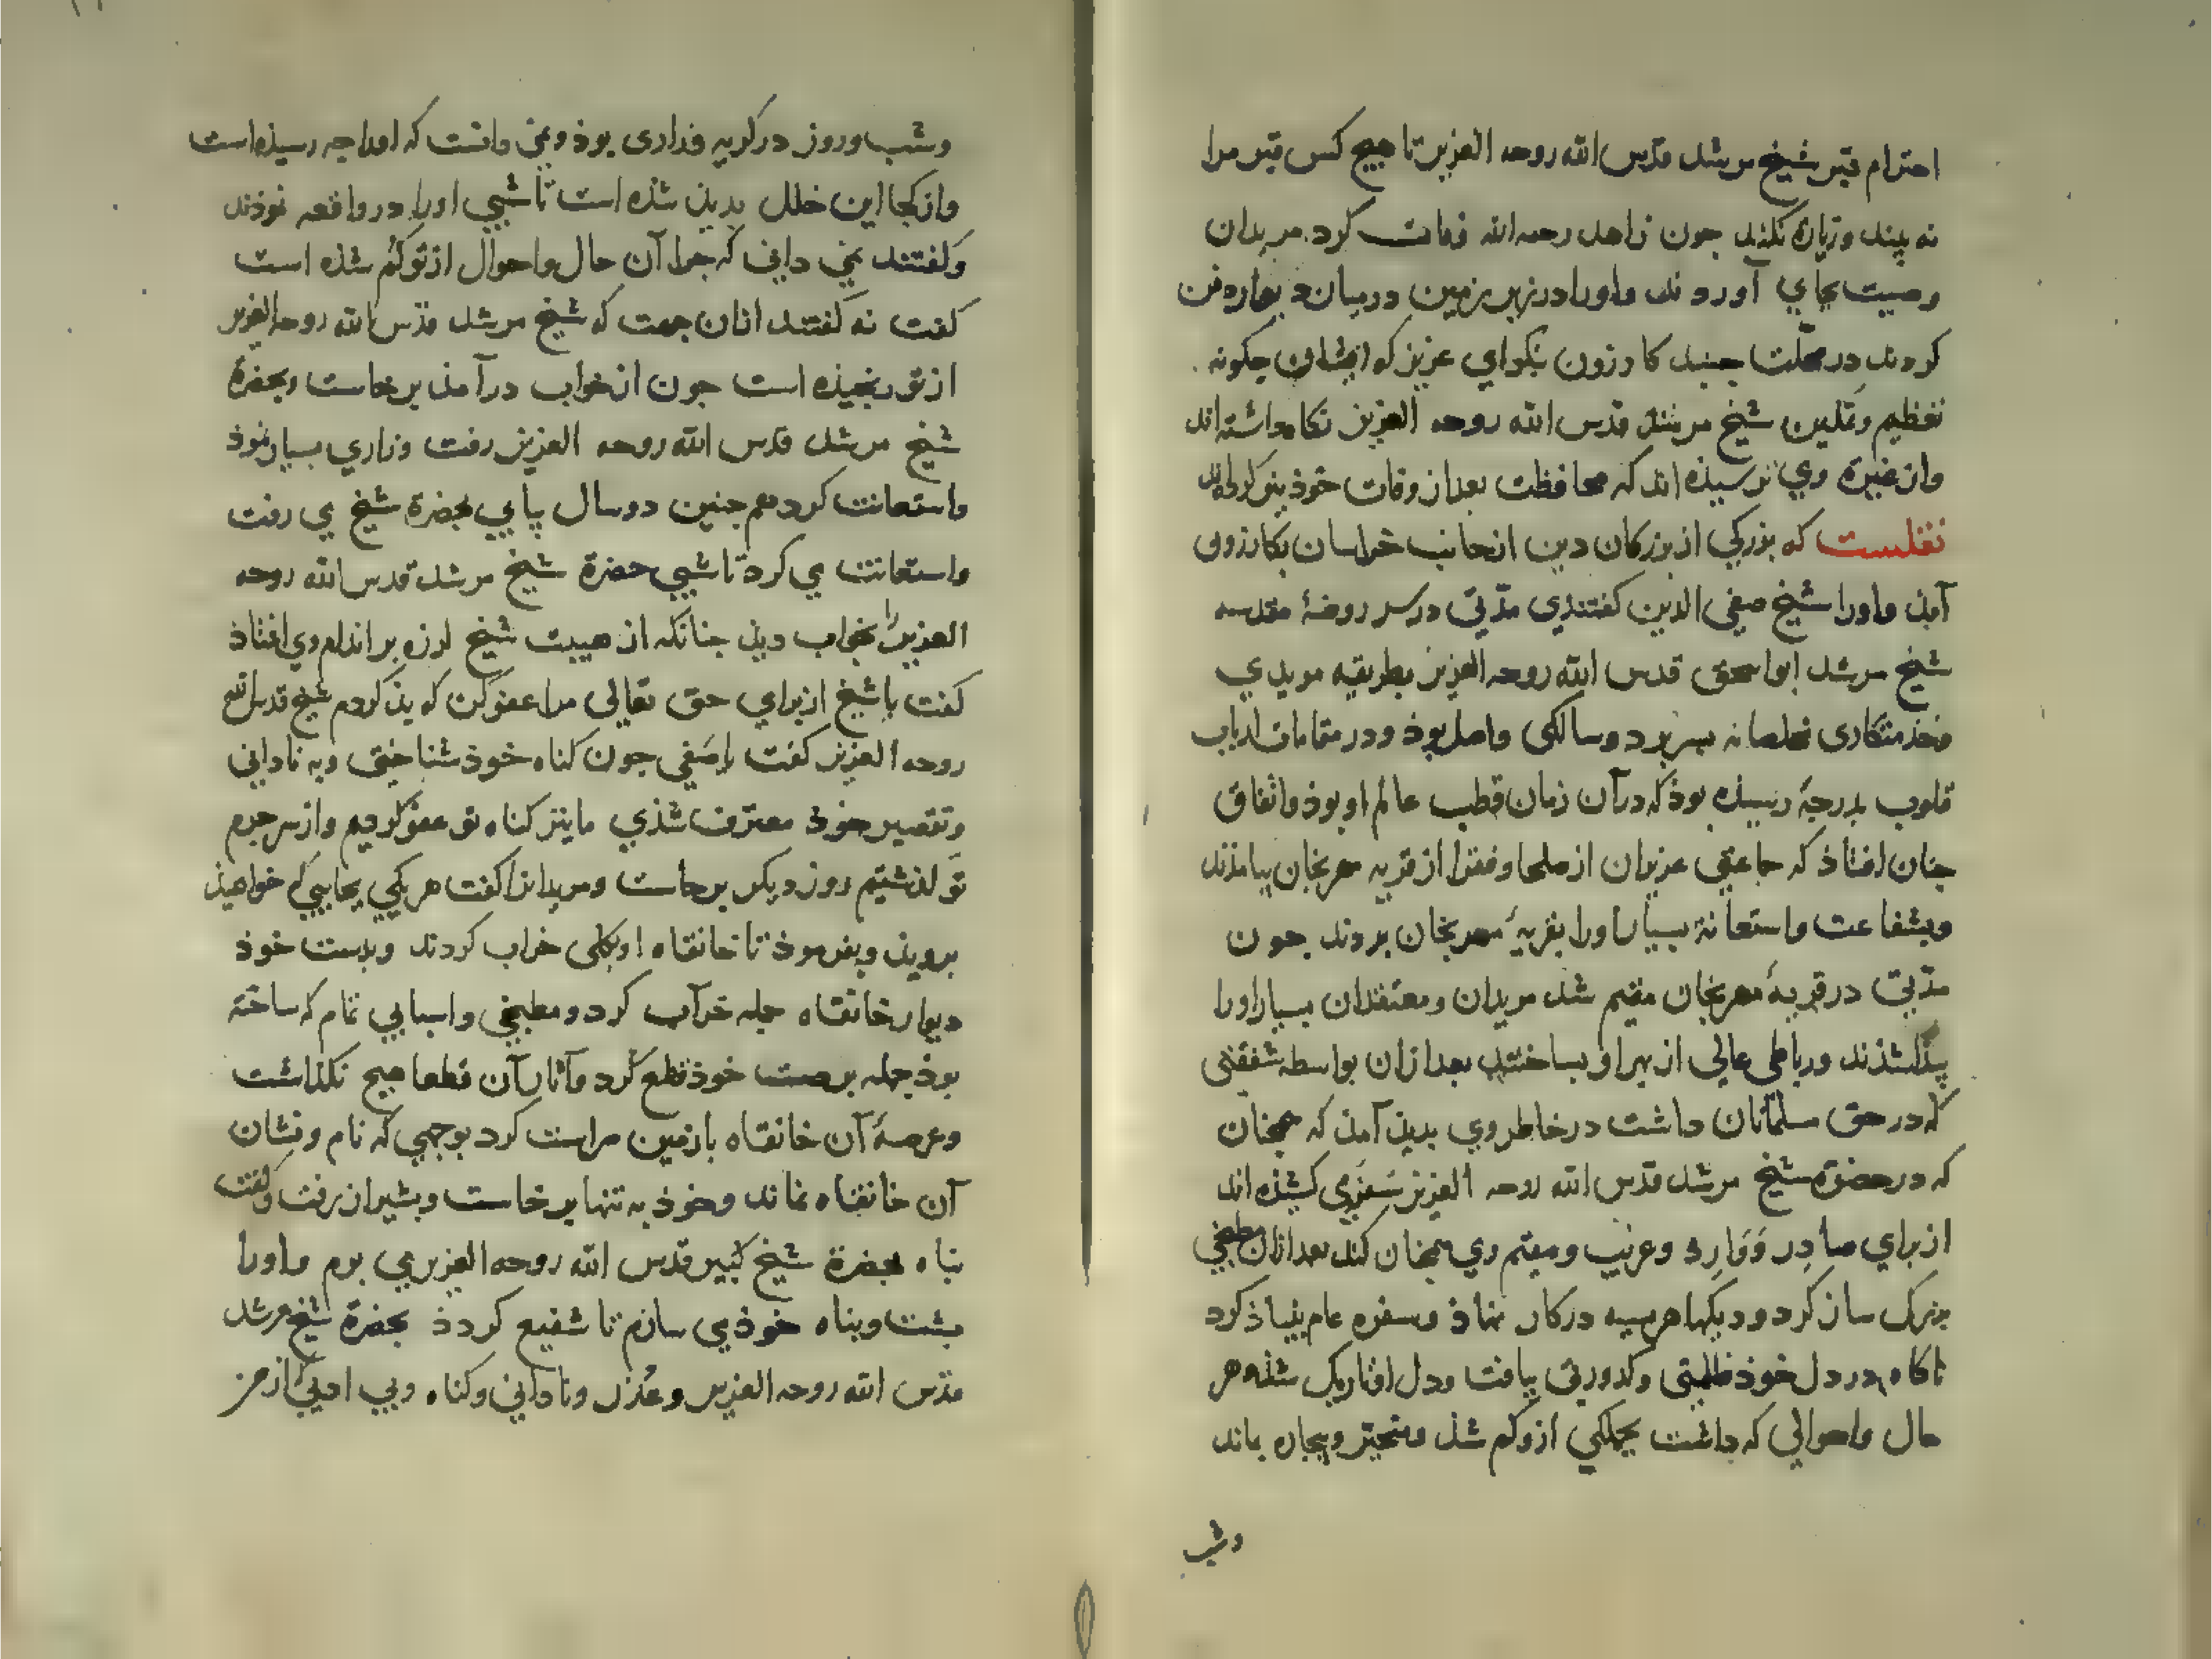 احترام قبر شیخ مرشد قدس الله روحه العزیز تا هیچ کس قبر مرا
نه بیند و زیارة نکند جون زاهد رحمه الله وفات کرد مریدان
وصیت بجای آوردند و اورا در زیر زمین در میان دیوار دفن
کردند در محلّت جنید کازرون بنکر ای عزیز که ایشان چکونه
تعظیم و تمکین شیخ مرشد قدس الله روحه العزیز نکاه داشته اند
و از غیرة وی ترسیذه اند که محافظت بعد از وفات خوذ بنی کرده اند
نقلست که بزرکی از بزرکان دین از جانب خراسان بکازرون
آمذ و اورا شیخ صفی الدین کفتندی مدّتی در سر روضهٔ مقدسه
شیخ مرشد ابواسحق قدس الله روحه العزیز بطریقه مریدی
و خذمتکاری مخلصانه بسر برد و سالکی واصل بوذ و در مقامات ارباب
قلوب بدرجهٔ رسیذه بوذ که در آن زمان قطب عالم او بوذ و اتفاق
جنان افتاذ که جماعتی عزیزان از صلحا و فقرا از قریه مهرنجان بیامذند
و بشفاعت و استعانة بسیار اورا بقریهٔ مهرنجان بردند جون
مدّتی در قریهٔ مهرنجان مقیم شد مریدان و معتقدان بسیار اورا
پیذا شذند و رباطی عالی از بهر او بساختند بعد از آن بواسطه شفقتی
که در حق مسلمانان داشت در خاطر وی بدید آمذ که همجنان
که در حضرة شیخ مرشد قدس الله روحه العزیز سفره‌ی کشیذه اند
از برای صادر و وارد و غریب و مقیم وی همجنان کند بعد از آن مطبخی
بزرک ساز کرد و دیکها هریسه در کار نهاذ و سفره عام بنیاذ کرد
ناکاه در دل خوذ ظلمتی و کدورتی یافت و دل او تاریک شذه هر
حال و احوالی که داشت بجملکی ازو کم شذ و متحیّر و بیجاره بماند
و شب
و شب و روز در کریه و زاری بوذ و نمی دانست که اورا چه رسیذه است
و از کجا این خلل پدیذ شذه است تا شبی اورا در واقعه نموذند
و کفتند نمی دانی که جرا آن حال و احوال از تو کم شذه است
کفت نه کفتند از آن جهت که شیخ مرشد قدس الله روحه العزیز
از تو رنجیذه است جون از خواب در آمذ برخاست و بحضرة
شیخ مرشد قدس الله روحه العزیز رفت و زاری بسیار نموذ
و استعانت کرد هم جنین دو سال پیاپی بحضرة شیخ می رفت
و استعانت می کرد تا شبی حضرة شیخ مرشد قدس الله روحه
العزیز را بخواب دیذ جنانکه از هیبت شیخ لرزه بر اندام وی افتاذ
کفت یا شیخ از برای حق تعالی مرا عفو کن که بذ کردم شیخ قدس الله
روحه العزیز کفت یا صفی جون کناه خوذ شناختی و به نادانی
و تقصیر خوذ معترف شذی ما نیز کناه تو عفو کردیم و از سر جرم
تو کذشتیم روز دیکر برخاست و مریدانرا کفت هر یکی بجایی که خواهیذ
برویذ و بفرموذ تا خانقاه او بکلی خراب کردند و بدست خوذ
دیوار خانقاه جمله خراب کرد و مطبخی و اسبابی تمام که ساخته
بوذ جمله بدست خوذ قطع کرد و آثار آن قطعا هیج نکذاشت
و عرصهٔ آن خانقاه با زمین راست کرد بوجهی که نام و نشان
آن خانقاه نماند و خوذ به تنها برخاست و بشیراز رفت و کفت
پناه بحضرة شیخ کبیر قدس الله روحه العزیز می برم و اورا
پشت و پناه خوذ می سازم تا شفیع کردذ بحضرة شیخ مرشد
قدس الله روحه العزیز و عُذر و نادانی و کناه و بی ادبی از من